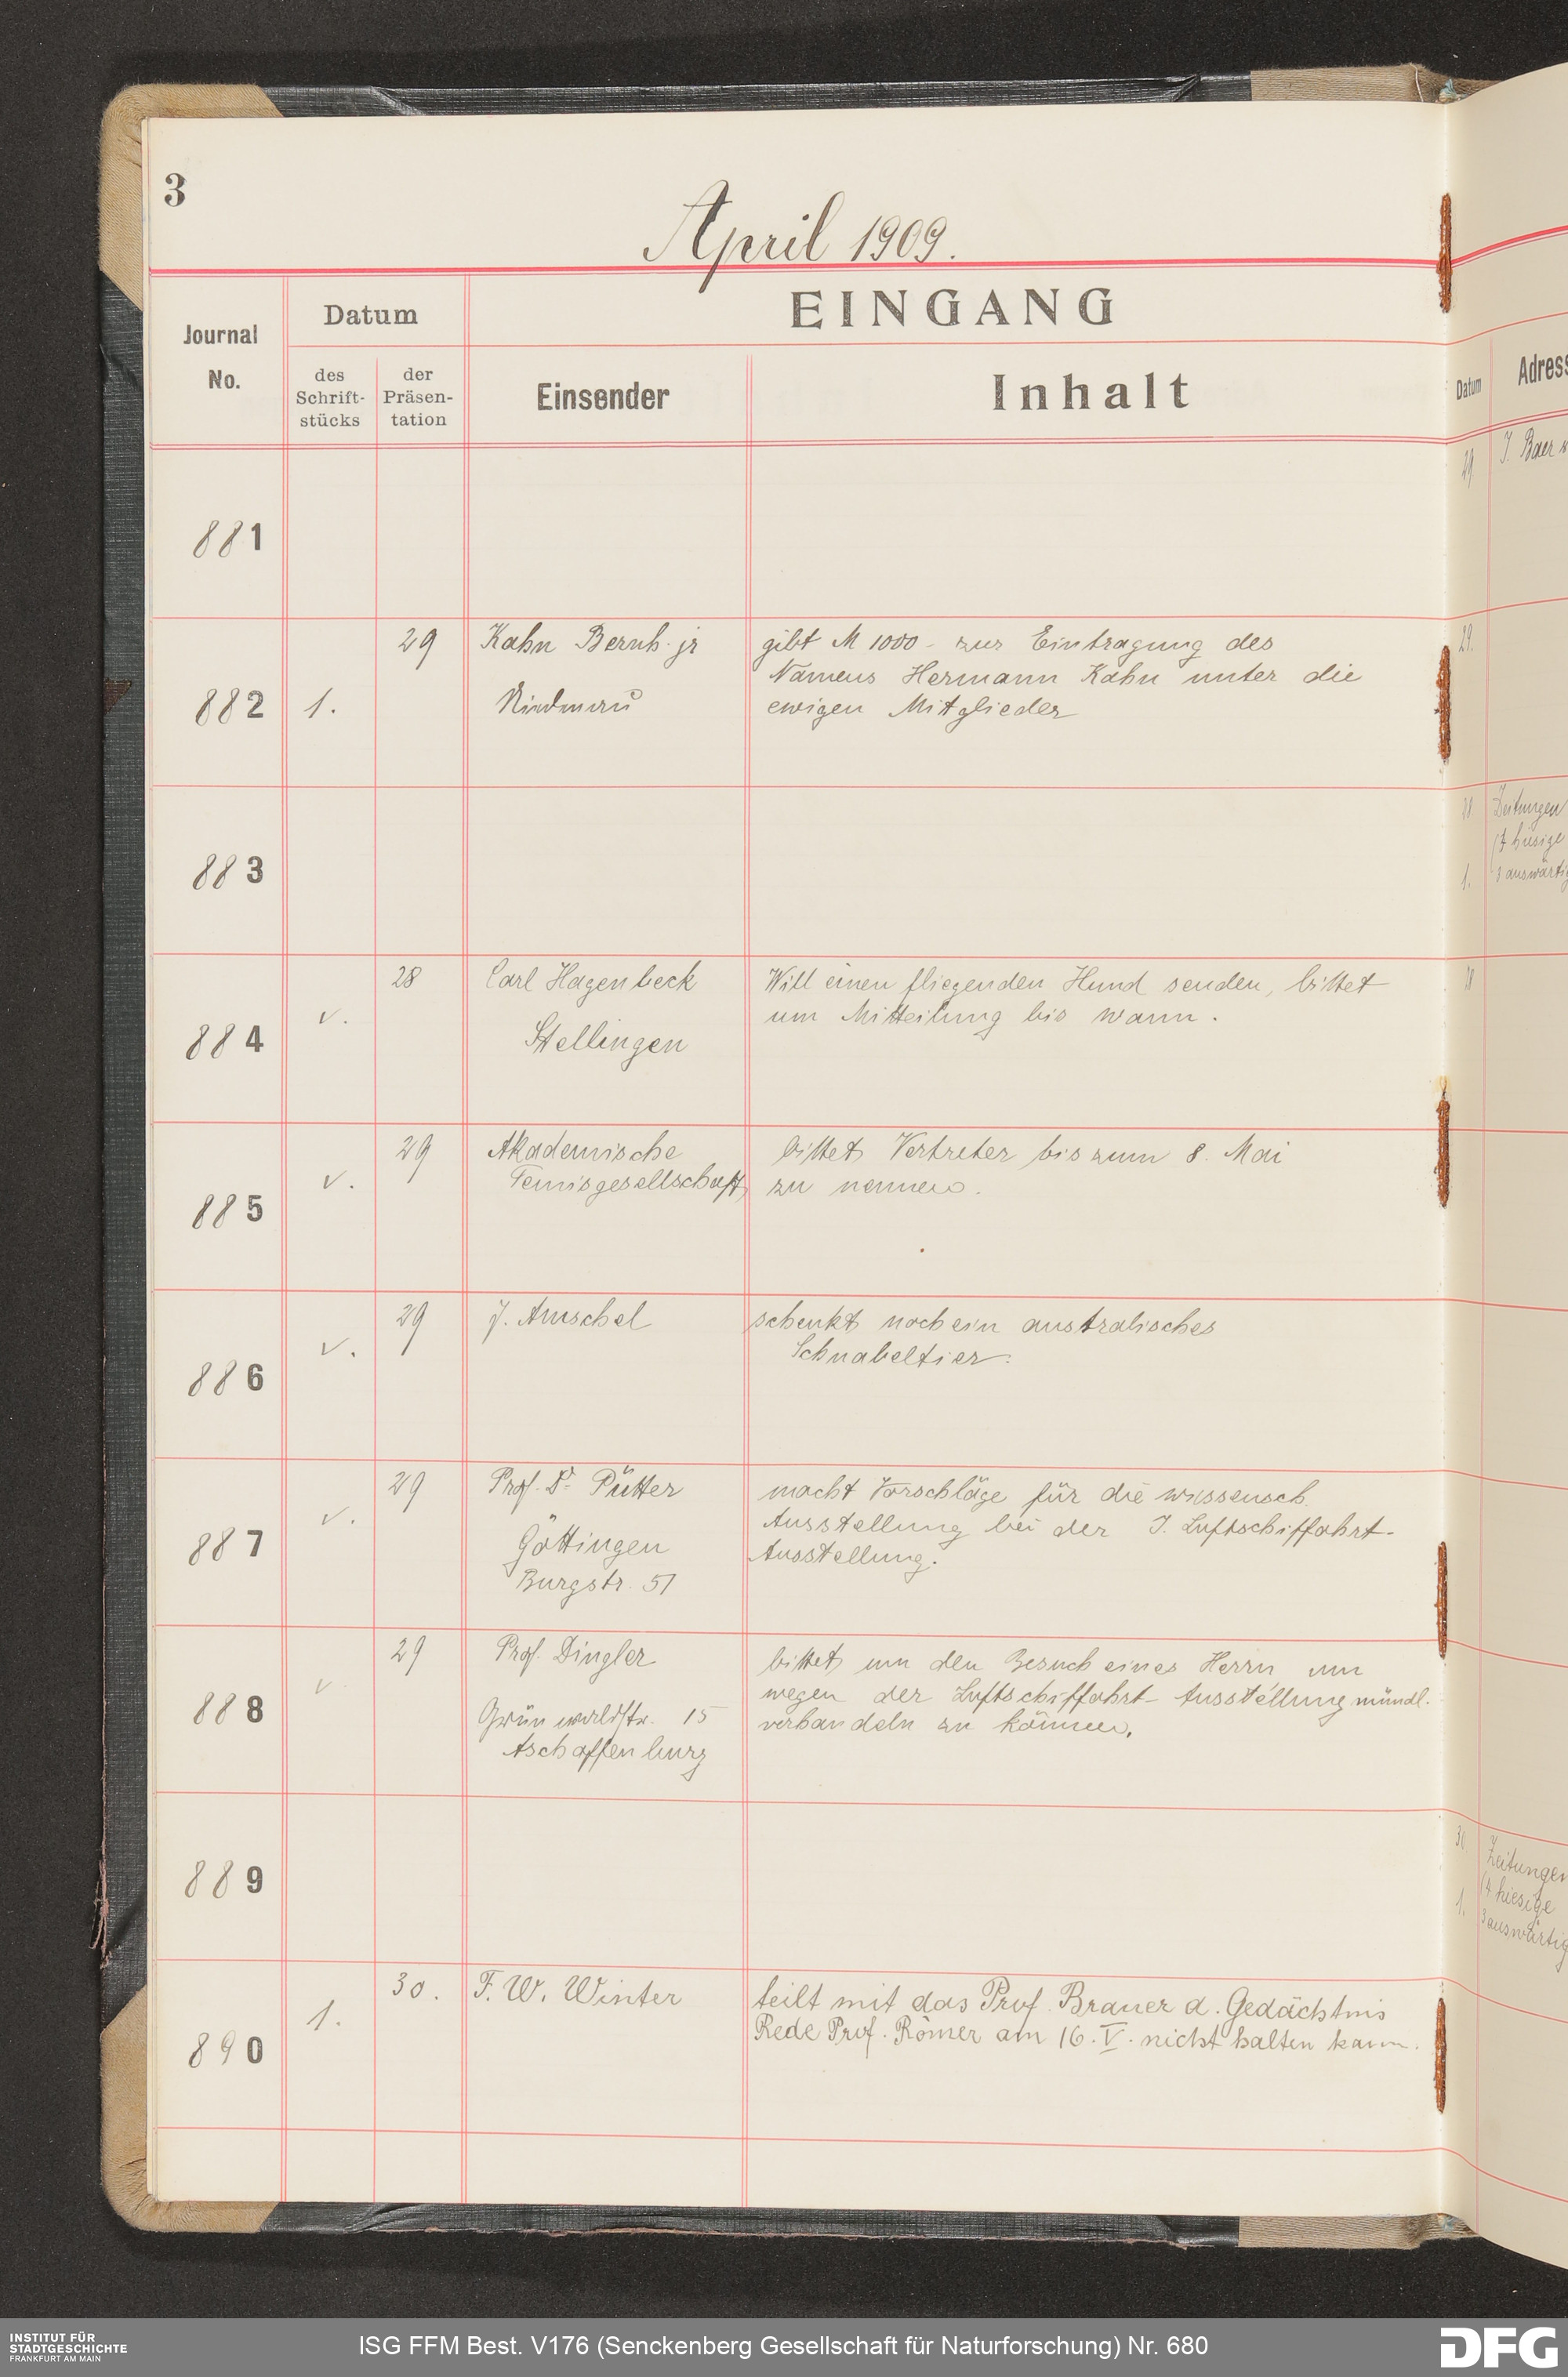 3
April 1909.
Journal No.
Datum
des Schrift- stücks
der Präsen- tation
EINGANG
Einsender
Inhalt
881
882
1.
29
Kahn Bernh. jr
gibt M 1000 - zur Eintragung des
Namens Hermann Kahn unter die
ewigen Mitglieder
883
884
v.
28
Carl Hagenbeck
Stellingen
Will einen fliegenden Hund senden, bittet
um Mitteilung bis wann.
885
v.
29
Akademische
Tennisgesellschaft
bittet Vertreter bis zum 8. Mai
zu nennen.
886
v.
29
J. Amschel
schenkt noch ein australisches
Schnabeltier.
887
v.
29
Prof. Dr. Pütter
Göttingen
Burgstr. 51
macht Vorschläge für die wissensch.
Ausstellung bei der J. Luftschiffahrt-
Ausstellung.
888
v
29
Prof. Dingler
Grünwaldstr. 15
Aschaffenburg
bittet um den Besuch eines Herrn um
wegen der Luftschiffahrt-Ausstellung mündl.
verhandeln zu können.
889
890
1.
30.
F. W. Winter
teilt mit das Prof. Brauer d. Gedächtnis
Rede Prof. Römer am 16. V. nicht halten kann.
Datum
Adress
29
J. Baer
29.
28
Zeitungen
(4 hiesige
1.
3 auswärtig
28
30
Zeitungen
(4 hiesige
1.
3 auswärtig
INSTITUT FÜR
STADTGESCHICHTE
FRANKFURT AM MAIN
ISG FFM Best. V176 (Senckenberg Gesellschaft für Naturforschung) Nr. 680
DFG